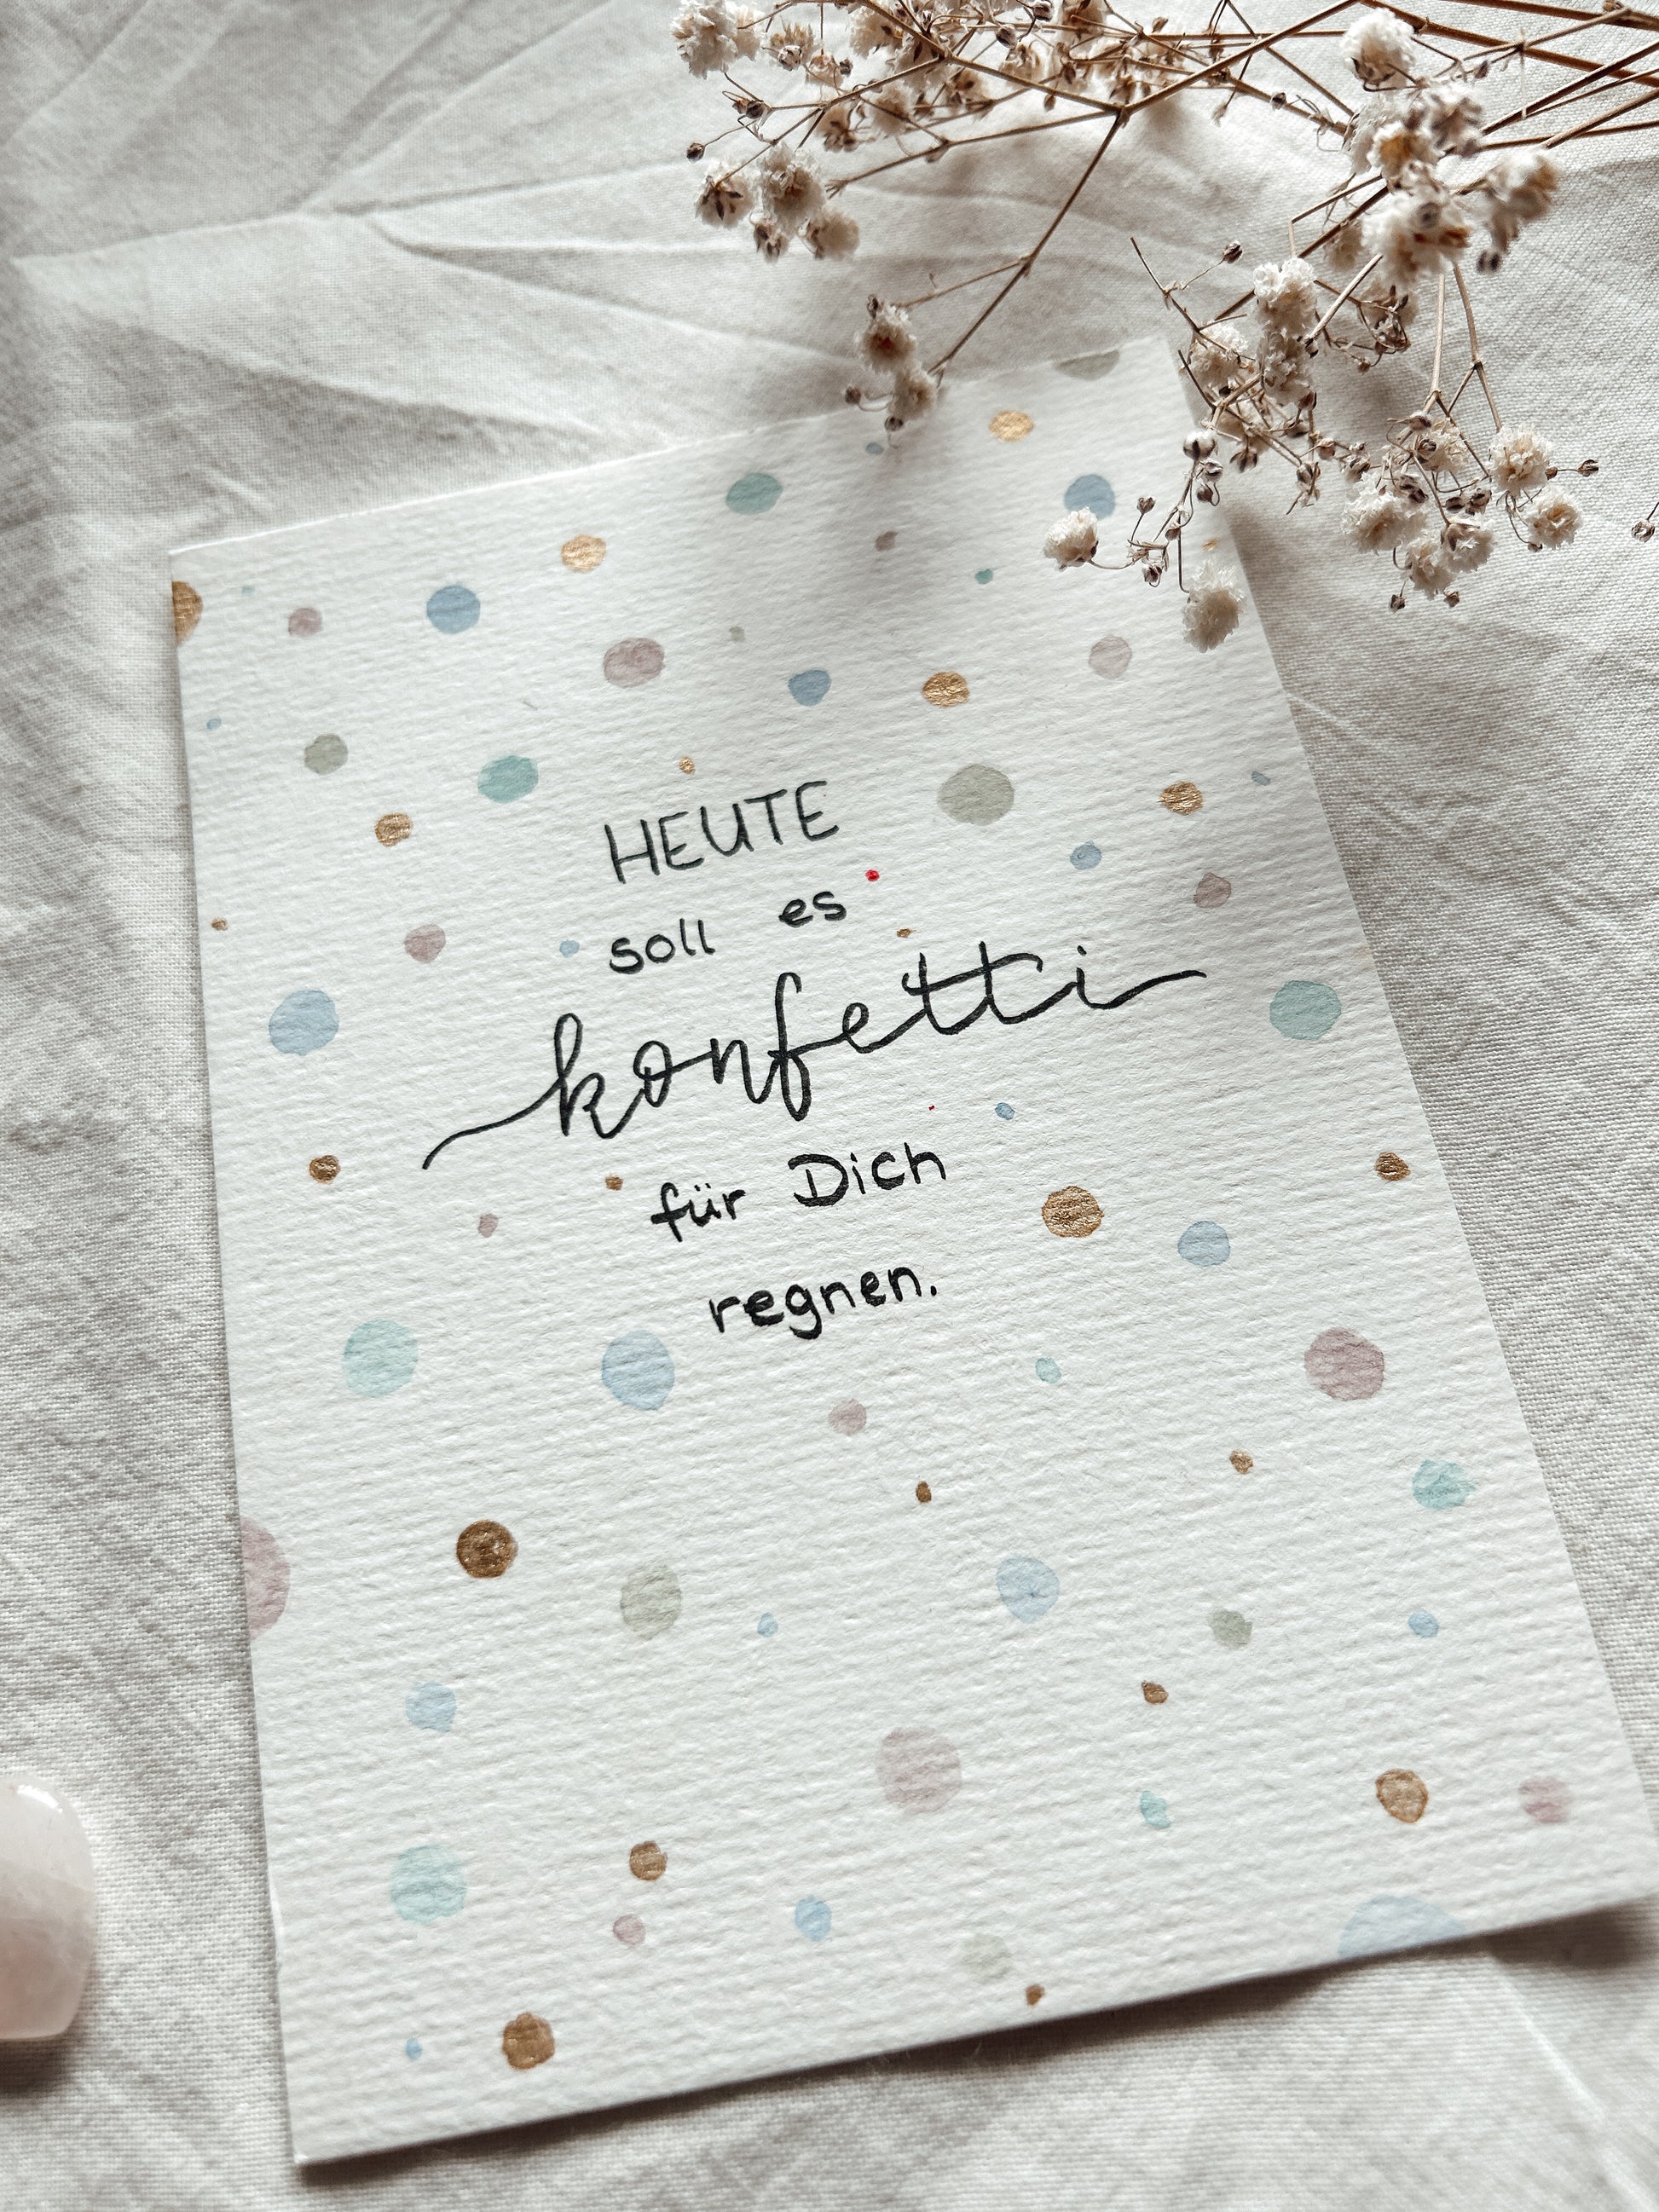 HEUTE
soll es
konfetti
für Dich
regnen.